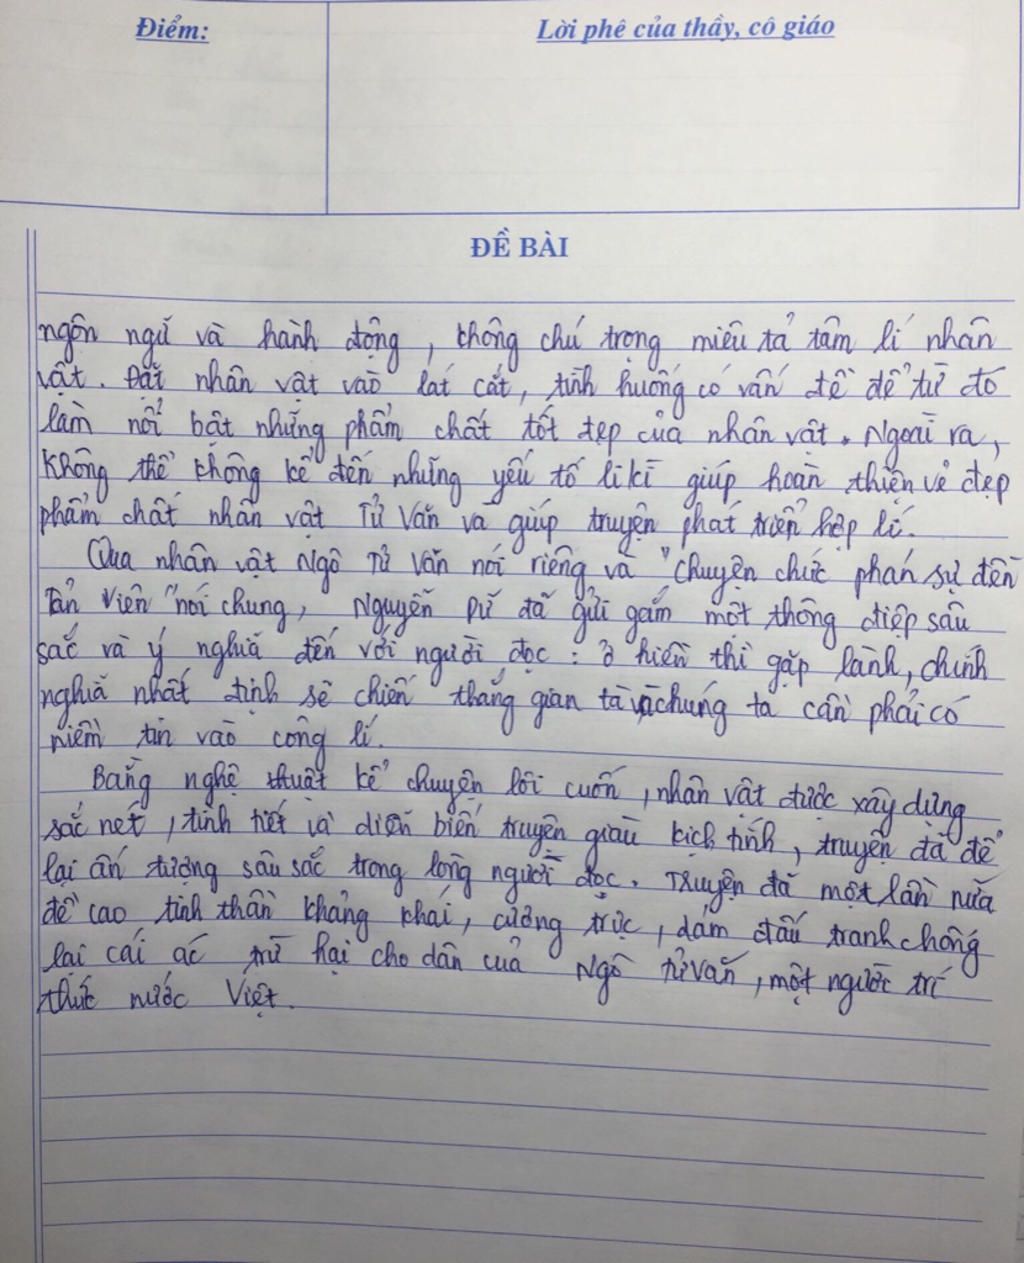 Điểm:
Lời phê của thầy, cô giáo
ĐỀ BÀI
ngôn ngữ và hành động, không chú trọng miêu tả tâm lí nhân
vật. Đặt nhân vật vào lát cắt, tình huống có vấn đề để từ đó
làm nổi bật những phẩm chất tốt đẹp của nhân vật. Ngoài ra,
không thể không kể đến những yếu tố li kì giúp hoàn thiện vẻ đẹp
phẩm chất nhân vật Tử Văn và giúp truyện phát triển hợp lí.
Qua nhân vật Ngô Tử Văn nói riêng và "Chuyện chức phán sự đền
Tản Viên" nói chung, Nguyễn Dữ đã gửi gắm một thông điệp sâu
sắc và ý nghĩa đến với người đọc: ở hiền thì gặp lành, chính
nghĩa nhất định sẽ chiến thắng gian tà và chúng ta cần phải có
niềm tin vào công lí.
Bằng nghệ thuật kể chuyện lôi cuốn, nhân vật được xây dựng
sắc nét, tình tiết và diễn biến truyện giàu kịch tính, truyện đã để
lại ấn tượng sâu sắc trong lòng người đọc. Truyện đã một lần nữa
đề cao tinh thần khảng khái, cương trực, dám đấu tranh chống
lại cái ác trừ hại cho dân của Ngô Tử Văn, một người trí
thức nước Việt.